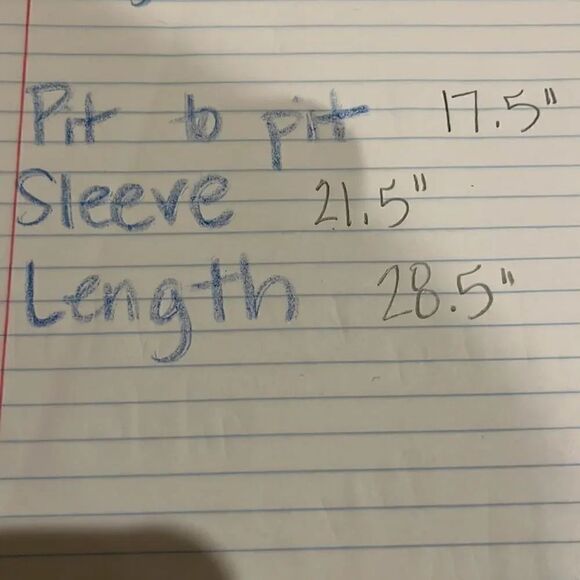 Pit to pit 17.5"
Sleeve 21.5"
Length 28.5"